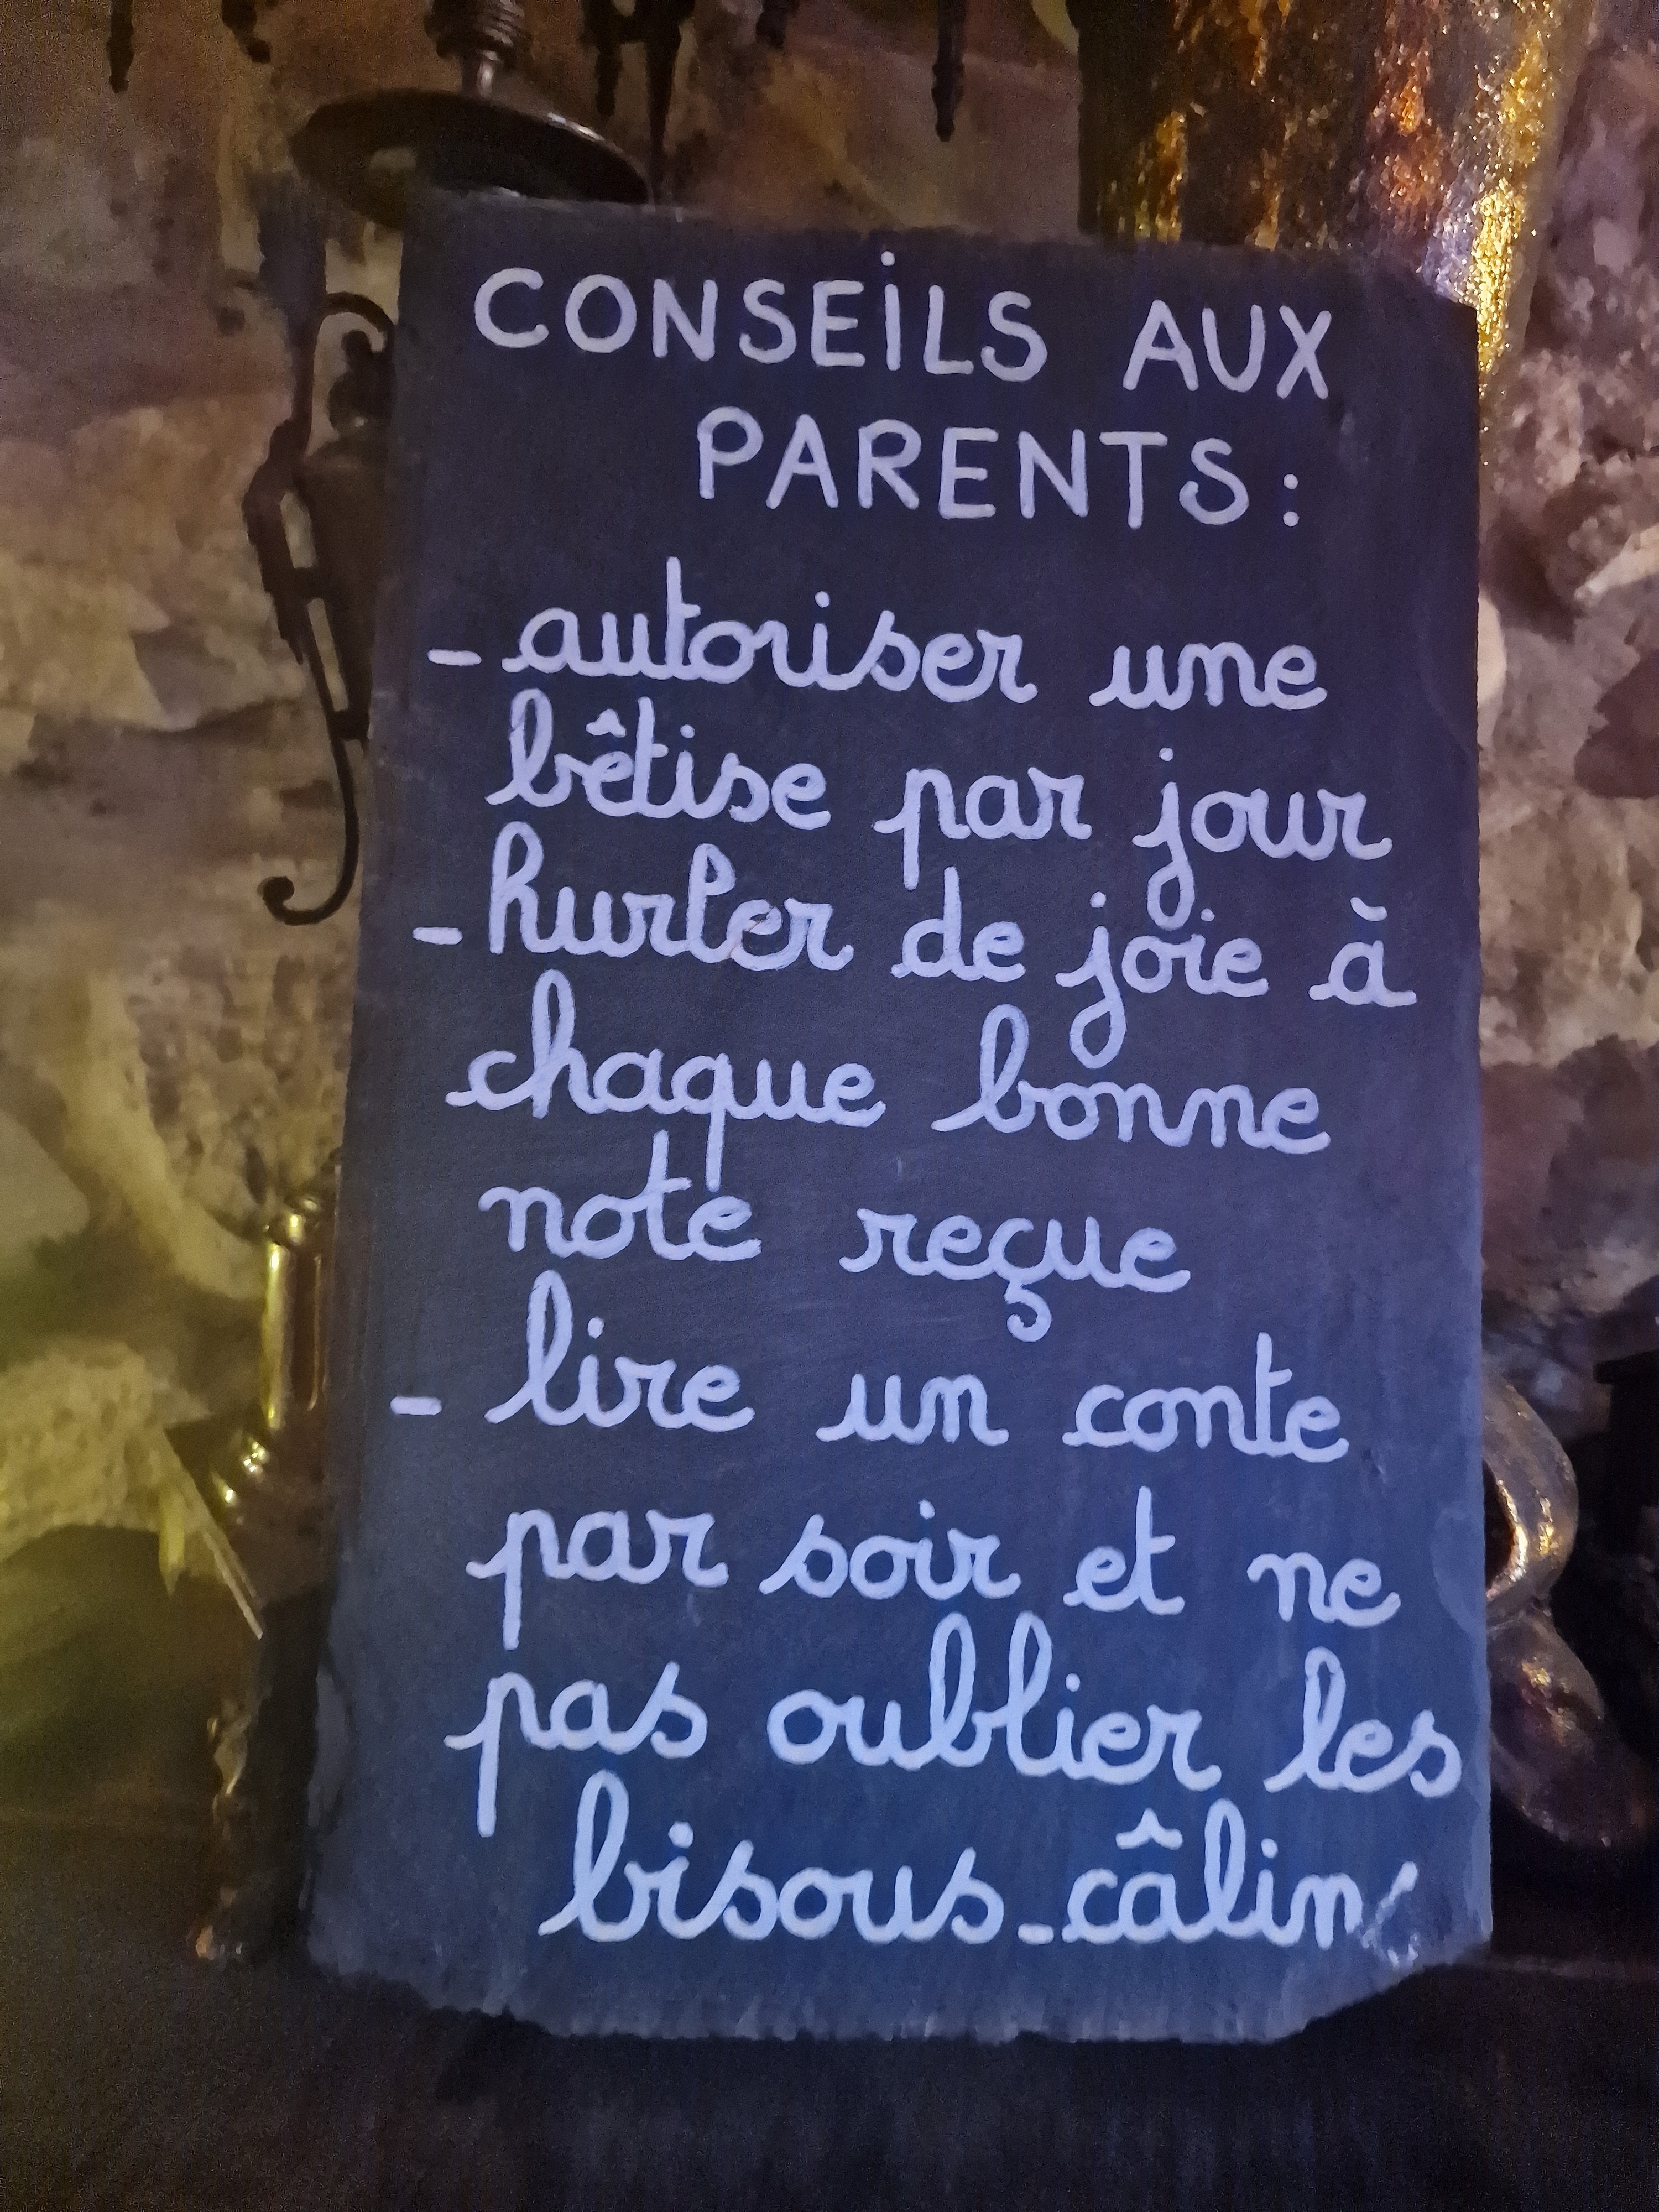 CONSEiLS AUX
PARENTS :
- autoriser une
bêtise par jour
- hurler de joie à
chaque bonne
note reçue
- lire un conte
par soir et ne
pas oublier les
bisous-câlins